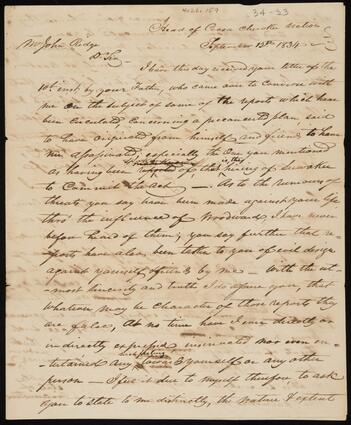 4026.189
34-33
Head of Coosa Cherokee nation
September 12th 1834
Mr John Ridge
Dr Sir,
I have this day received your letter of the
10th inst by your Father, who came over to converse with
me on the subject of some of the reports which have
been circulated concerning a preconcerted plan, said
to have originated from himself and friends to have
me assassinated, especially the one you mentioned
as having been reported in this
of that hiring of
to commit the act — As to the rumours of
threats you say have been made against your life
thro' the influence of Woodward I have never
before heard of them; you say further that re-
ports have also been to you of evil design
against yourself & friends by me — With the ut-
most sincerity and truth I do assure you, that
whatever may be character of those reports they
are false, At no time have I ever directly or
indirectly expressed insinuated nor even en-
tertained any such feeling towards yourself or any other
person — I feel it due to myself therefore, to ask
you to state to me distinctly, the nature & extent